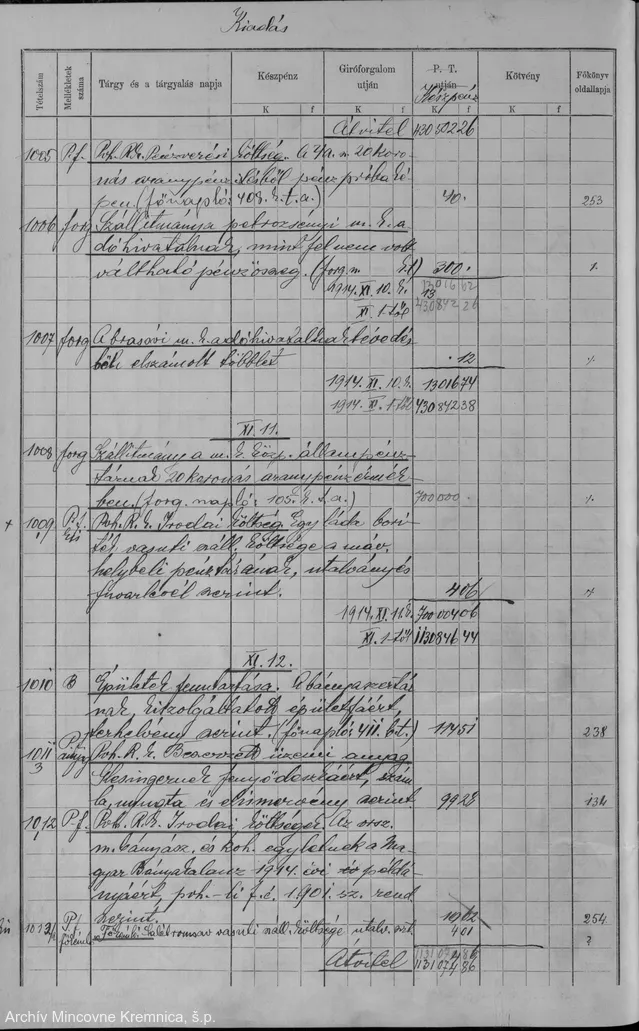 Kiadás
Tételszám Mellékletek száma Tárgy és a tárgyalás napja Készpénz Giróforgalom utján P. T. utján Kötvény Főkönyv oldallapja
Készpénz
K f K f K f K f
Átvitel 430 522 26
1005 P.f. Poh. R.k. Pénzverési költség. A 4/a. m. 20 koro-
nás aranypénz pénz próbaké
pen (főnapló: 408. k.t.a.) 40. 253
1006 forg Szállítmány a petrozsényi m. k. a
dóhivatalnak, mint fel nem volt
váltható pénzösszeg. (forg. n 300. 1.
1914. XI. 10. k. 13016 62
XI. 1-től 430842 26
1007 forg A brassói m. k. adóhivatalnak tévedés
ből elszámolt többlet . 12
1914. XI. 10. k 13016 74
1914. XI. 1-től 430842 38
XI. 11.
1008 forg Szállítmány a m. k. közp. állampénz-
tárnak 20 koronás aranypénzérmék-
ben. (forg. napló: 105. k.t.a.) 700000. 1.
1009 P.f. Poh. R.k. Irodai költség. Egy láda borí
ték vasuti száll. költsége a máv.
helybeli pénztárának, utalvány és
fuvarlevél szerint. 4 06
1914. XI. 11. k. 700004 06
XI. 1-től 1130846 44
XI. 12.
1010 B Épületek fenntartása. A bányapénztár
nak, kiszolgáltatott épületfáért,
terhelvény szerint. (főnapló: 114 51 238
1011 Poh. R.k. Beszerzett üzemi anyag
3 Klesingernek fenyődeszkáért, szám
la, nyugta és elismervény szerint 99 28 134
1012 P.f. Poh. R.k. Irodai költségek. Az orsz.
m. bányász. és koh. egyletnek a Ma
gyar Bányakalauz 1914. évi példá
nyáért, poh.-li f. é. 1901. sz. rend.
szerint. 10 62 254
1013 Salétromsav vasuti száll. költsége utalv. szt. 4 01 ?
Átvitel 1131074 86
Archív Mincovne Kremnica, š.p.